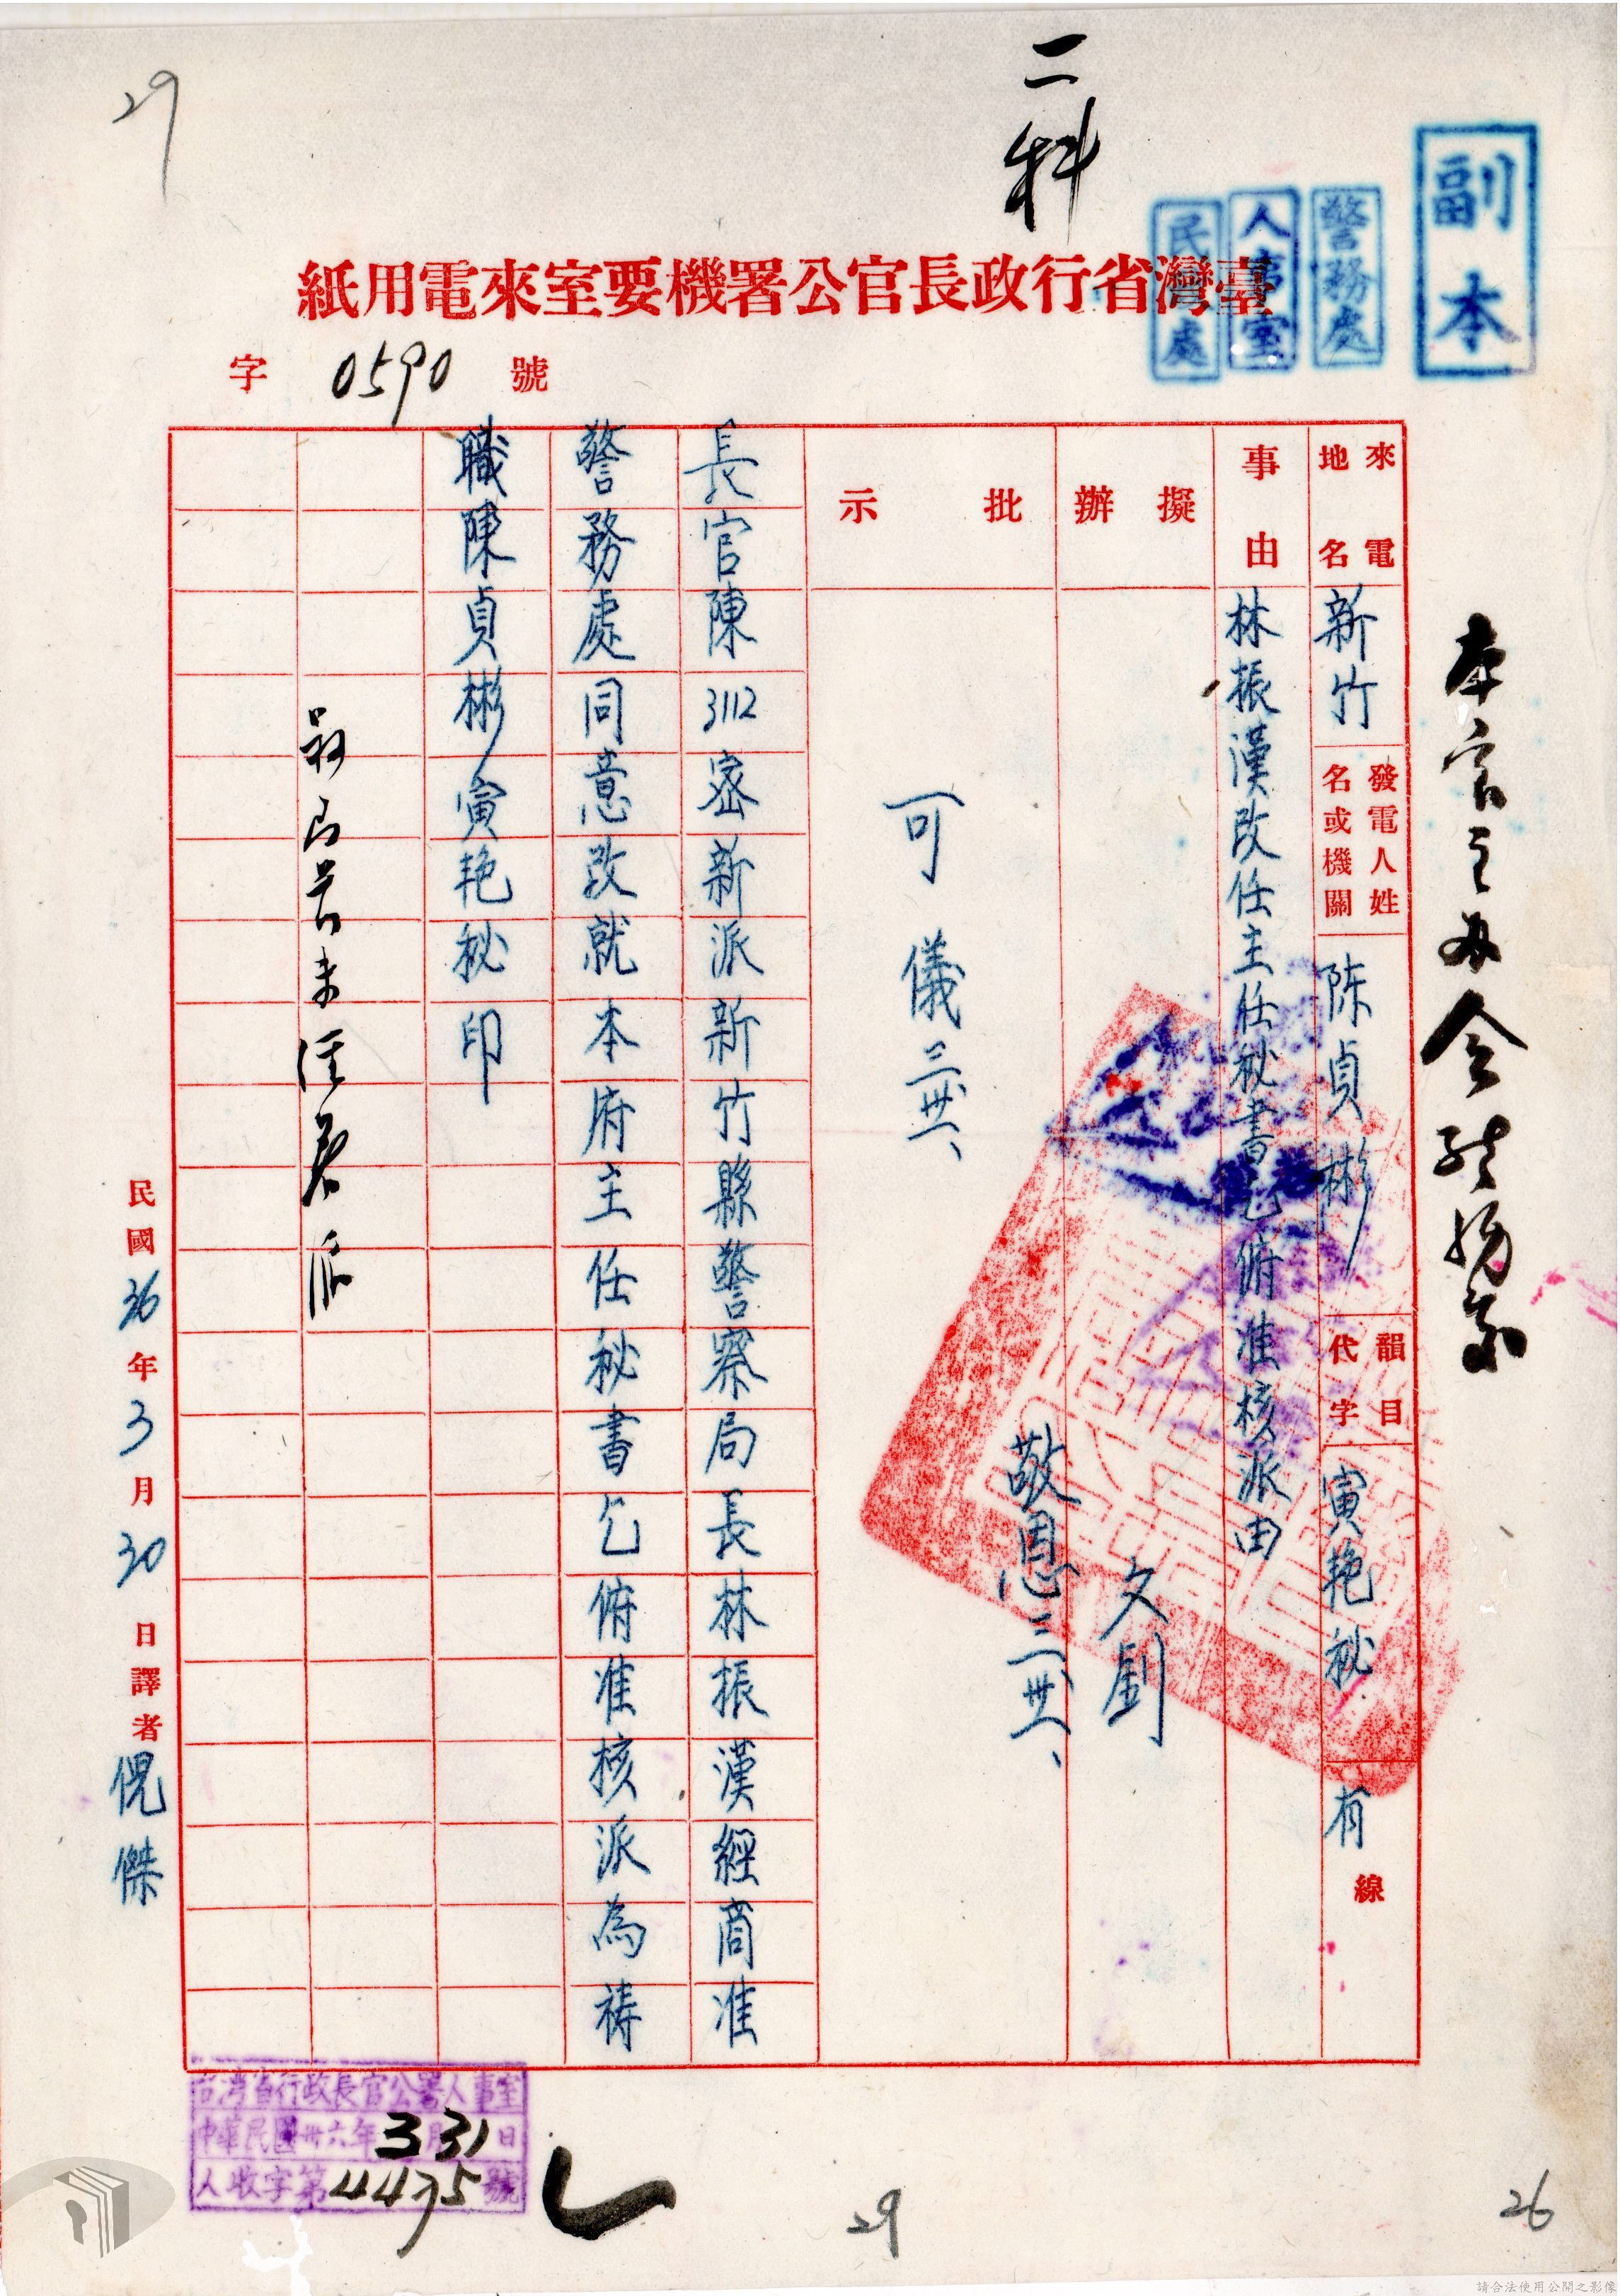 29
二科
副本
警務處
人事室
民政處
臺灣省行政長官公署機要室來電用紙
字 0590 號
來電地名 新竹
發電人姓名或機關 陈貞彬
韻目代字 寅艳祕
有線
事由 林振漢改任主任秘書乞俯准核派由
擬辦
文釗
批示
敬恩 三卅一、
可 儀 三卅一、
長官陳3112密新派新竹縣警察局長林振漢經商准
警務處同意改就本府主任秘書乞俯准核派為禱
職陳貞彬寅艳秘印
民國36年3月30日譯者倪傑
台灣省行政長官公署人事室
中華民國卅六年3月31日
人收字第4475號
29
26
請合法使用公開之影像